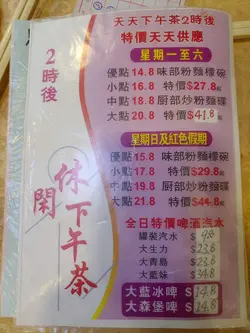 天天下午茶2時後
特價天天供應
2時後
休閑下午茶
星期一至六
優點 14.8 味部粉麵檬碗
小點 16.8 特價$27.8
中點 18.8 厨部炒粉麵碟
大點 20.8 特價$41.8
星期日及紅色假期
優點 15.8 味部粉麵檬碗
小點 17.8 特價$29.8
中點 19.8 厨部炒粉麵碟
大點 21.8 特價$44.8
全日特價啤酒汽水
罐裝汽水 $
大生力 $ 23.8
大青島 $ 23.8
大藍妹 $ 34.8
大藍冰啤 $ 14.8
大森堡啤 $ 14.8